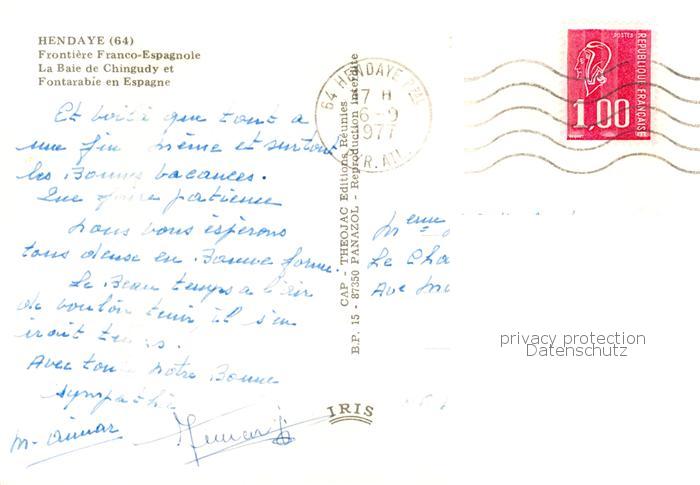 HENDAYE (64)
Frontière Franco-Espagnole
La Baie de Chingudy et
Fontarabie en Espagne
Et voilà que tout a
une fin même et surtout
les Bonnes vacances.
Que faire patience
nous vous espérons
tous deuse en Bonne forme.
Le Beau temps a l'air
de vouloir tenir, il s'en
irait
Avec toute notre Bonne
sympathie
CAP - THEOJAC Editions Réunies
B.P. 15 - 87350 PANAZOL - Reproduction interdite
IRIS
64 HENDAYE PPAL
17 H
6-9
1977
POSTES
REPUBLIQUE FRANÇAISE
1,00
Mme
Le Cha
Ave
privacy protection
Datenschutz